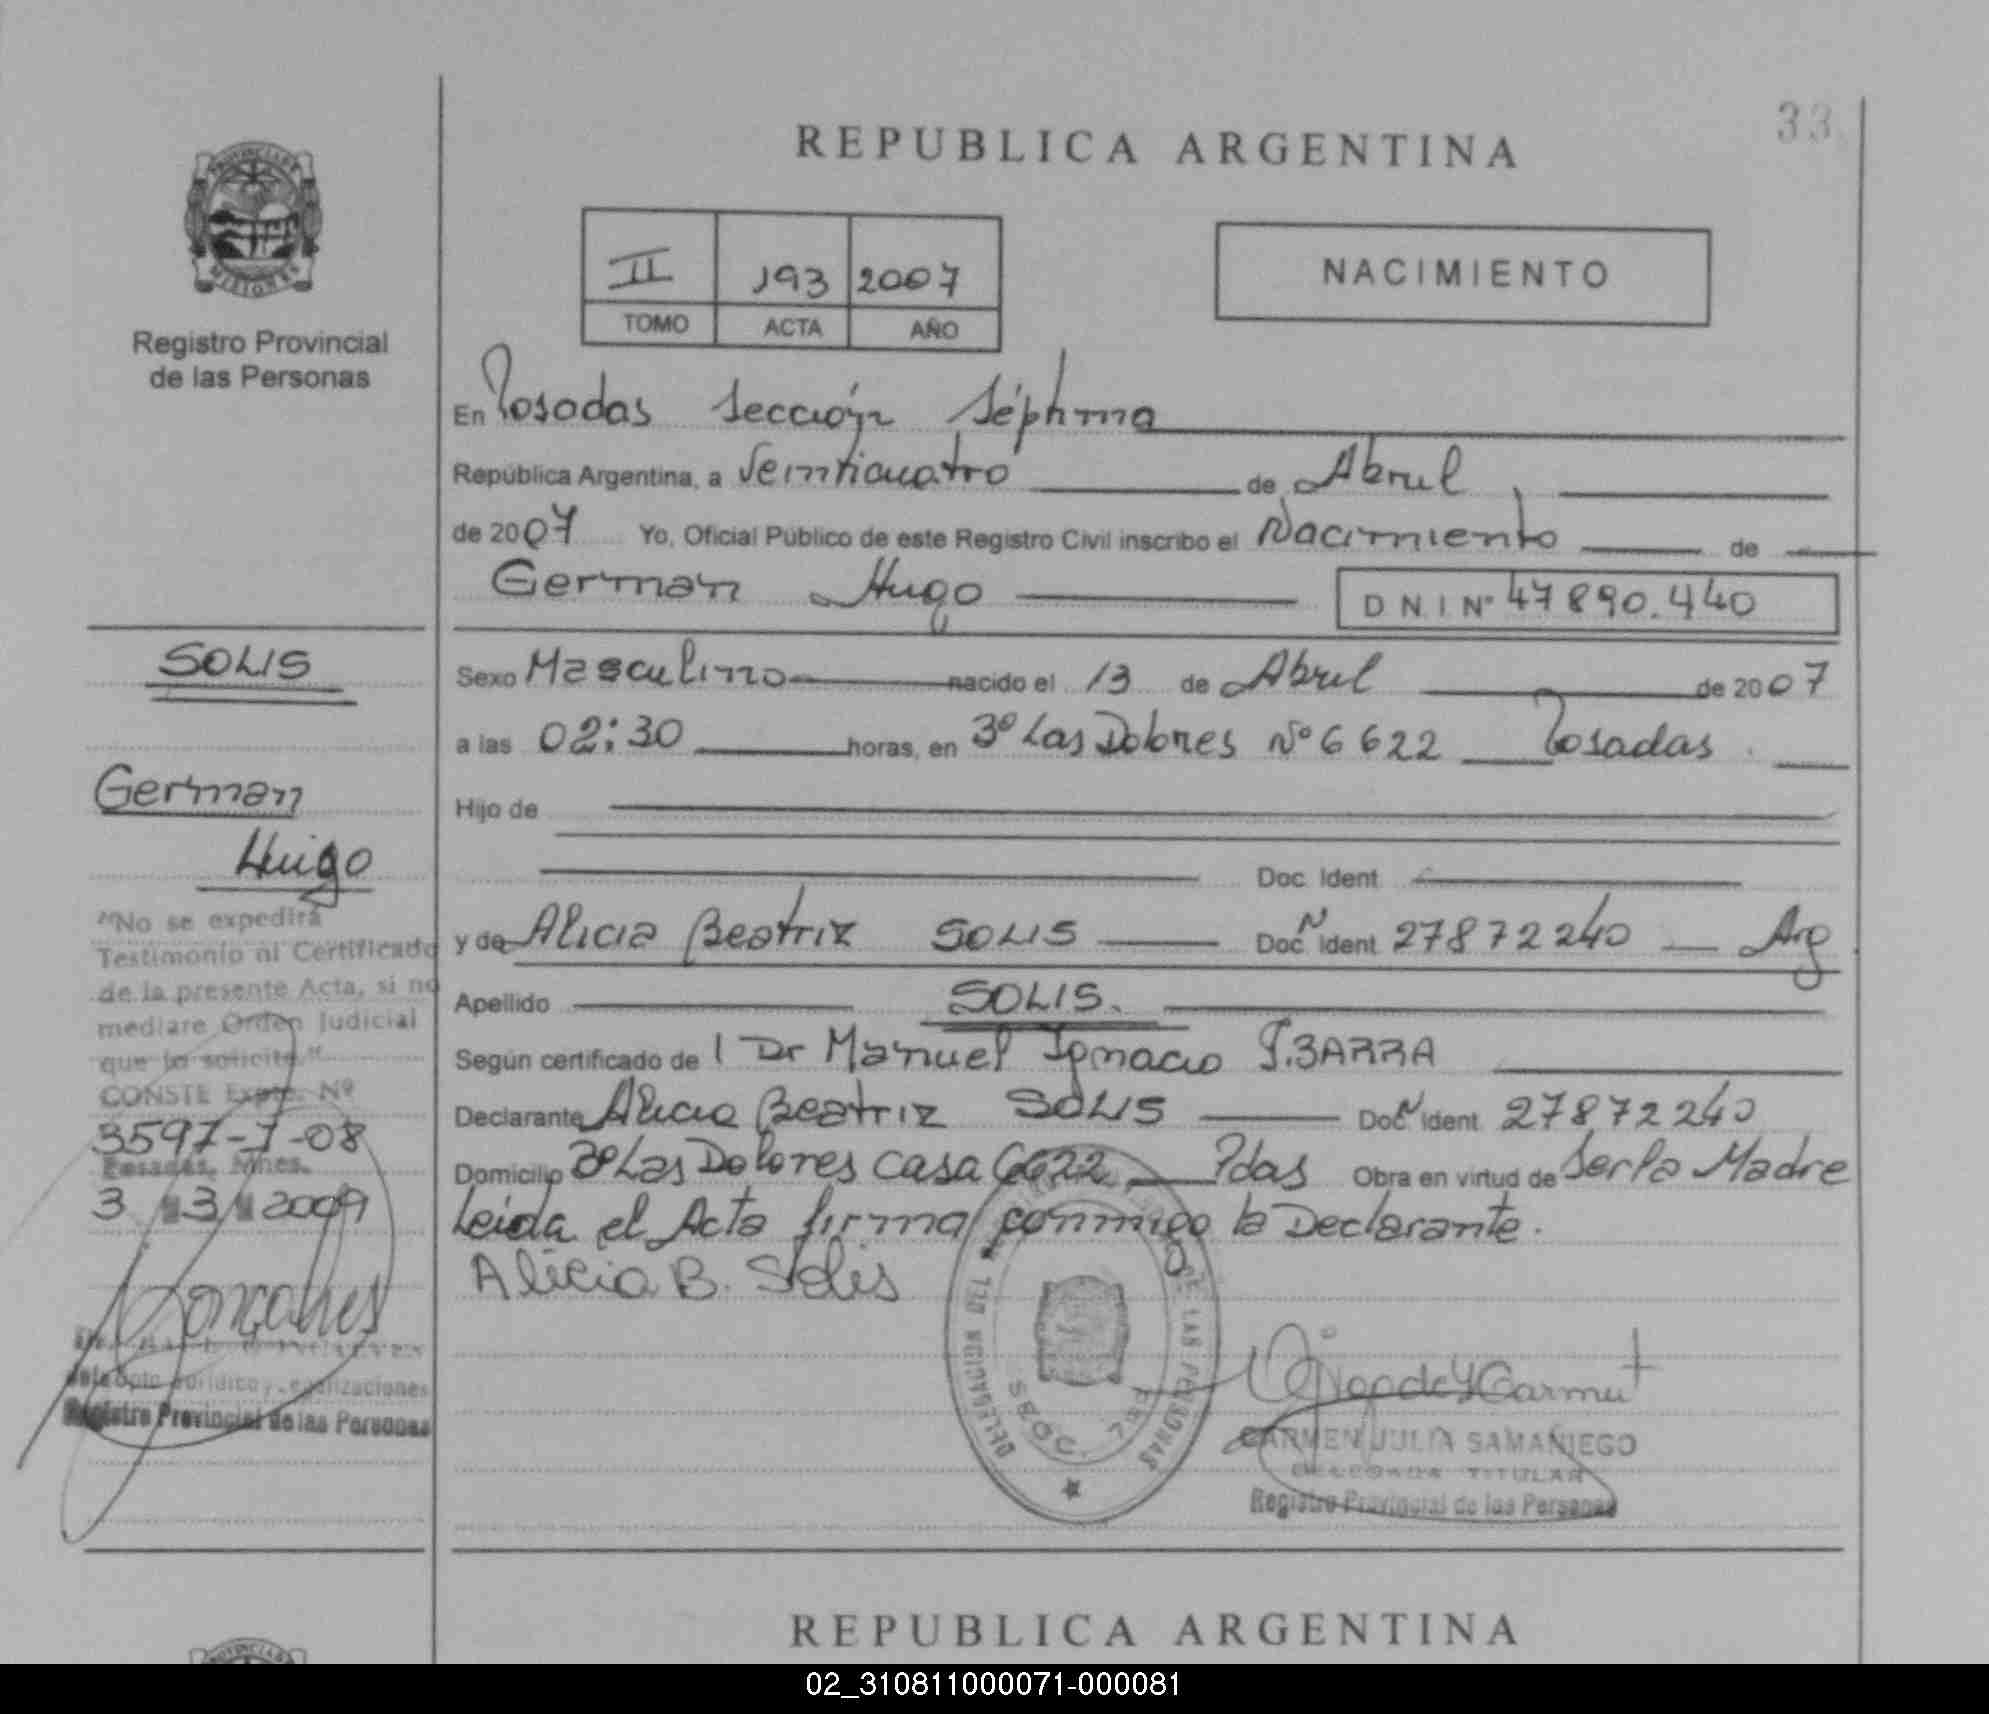 33
REPUBLICA ARGENTINA
PROVINCIA DE
MISIONES
Registro Provincial
de las Personas
II 193 2007
TOMO ACTA AÑO
NACIMIENTO
En Posadas Sección Séptima
República Argentina, a Veinticuatro de Abril
de 2007 Yo, Oficial Público de este Registro Civil inscribo el Nacimiento de
German Hugo D N.I Nº 47890.440
Sexo Masculino nacido el 13 de Abril de 2007
a las 02:30 horas, en 3º Las Dolores Nº 6622 Posadas.
Hijo de
Doc. Ident
y de Alicia Beatriz SOLIS Doc. N Ident 27872240 Arg
Apellido SOLIS.
Según certificado de l Dr Manuel Ignacio
Declarante Alicia Beatriz SOLIS Doc N Ident 27872240
Domicilio 3º Las Dolores casa 6622 Pdas Obra en virtud de Ser la Madre
Leida el Acta firma conmigo la Declarante.
Alicia B. Solis
DELEGACION DEL DE LAS PERSONAS
CARMEN JULIA SAMANIEGO
DELEGADA TITULAR
Registro Provincial de las Personas
SOLIS
German
Hugo
"No se expedirá
Testimonio ni Certificado
de la presente Acta, si no
mediare Orden Judicial
que lo solicite."
CONSTE Expte. Nº
3597-J-08
Posadas, Mnes.
3 3 2009
Dpto Jurídico y Legalizaciones
Registro Provincial de las Personas
REPUBLICA ARGENTINA
02_310811000071-000081